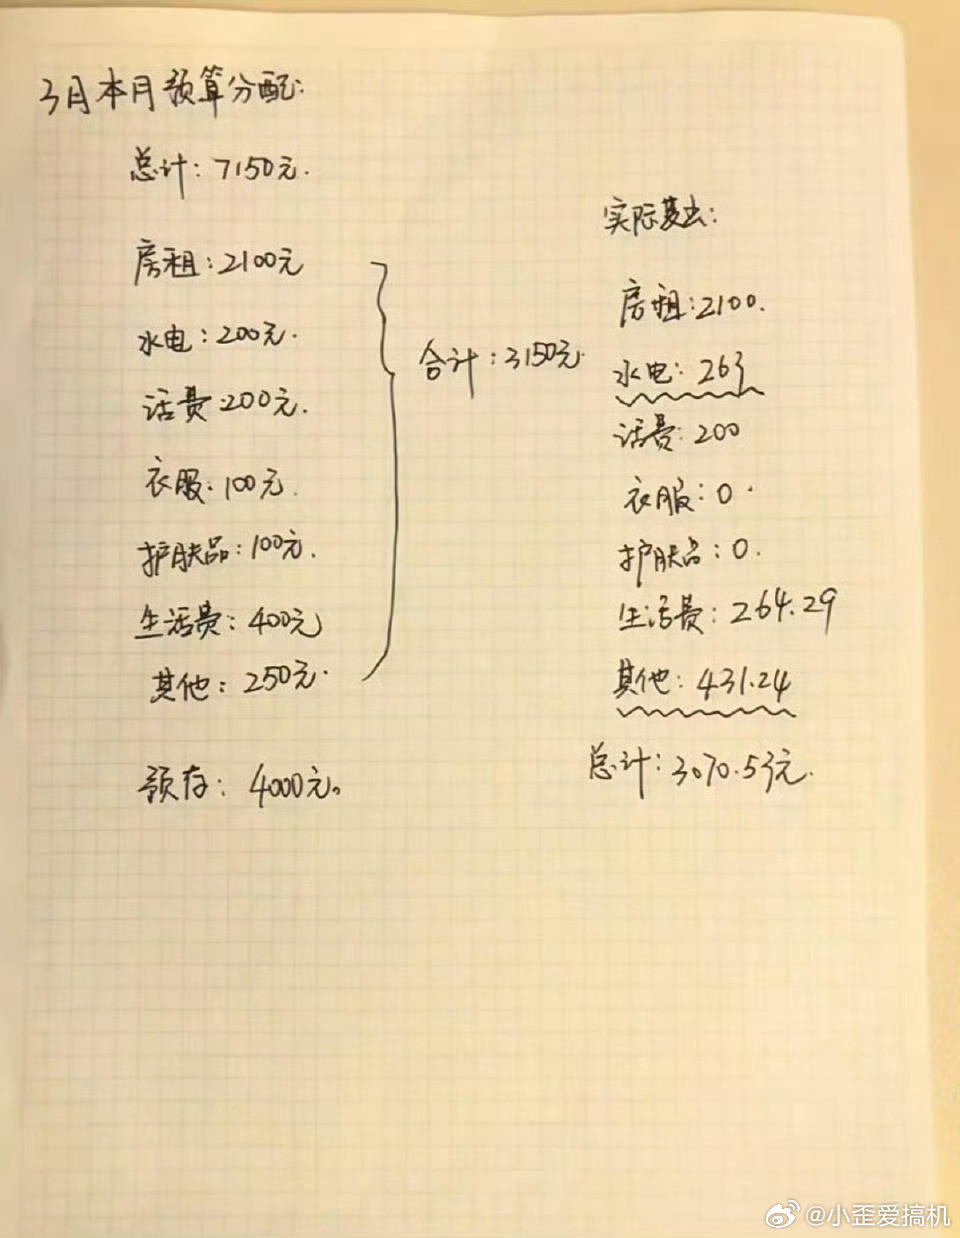 3月本月预算分配:
总计: 7150元.
房租: 2100元
水电: 200元.
话费200元.
衣服: 100元.
护肤品: 100元.
生活费: 400元
其他: 250元.
合计: 3150元.
预存: 4000元。
实际支出:
房租: 2100.
水电: 263
话费: 200
衣服: 0.
护肤品: 0.
生活费: 264.29
其他: 431.24
总计: 3070.53元.
@小歪爱搞机